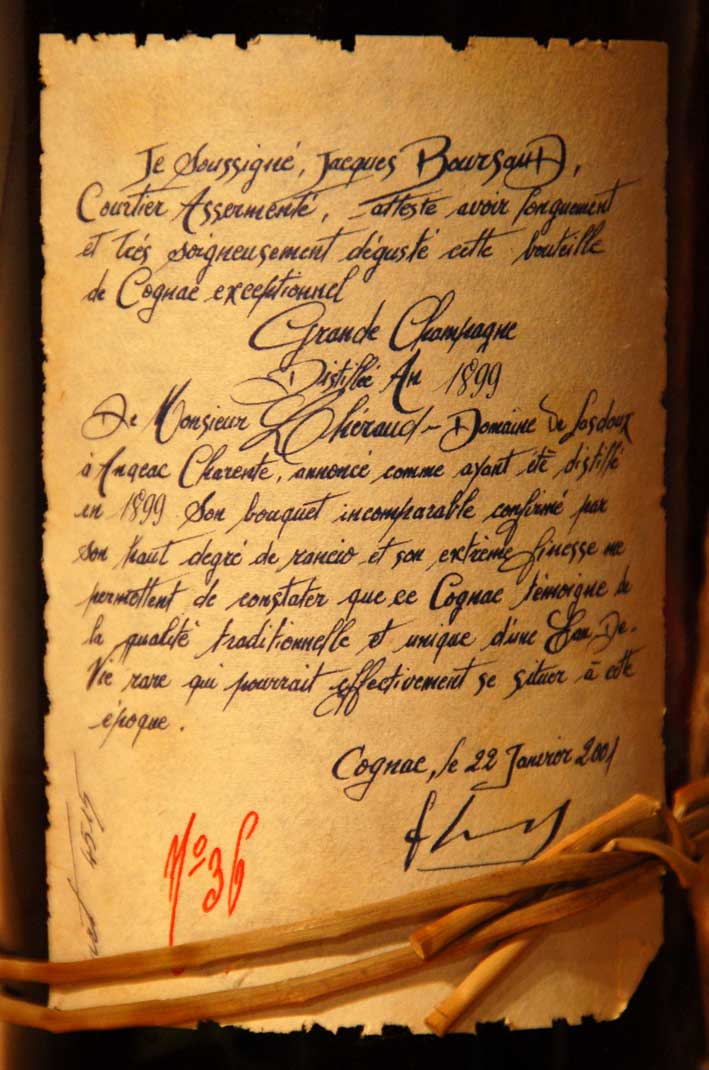 Je Soussigné, Jacques BoursauD,
Courtier Assermenté, atteste avoir longuement
et très soigneusement dégusté cette bouteille
de Cognac exceptionnel
Grande Champagne
Distillée An 1899
De Monsieur LHéraud-Domaine De Lasdoux
à Angeac Charente, annoncé comme ayant été distillé
en 1899 Son bouquet incomparable confirmé par
son haut degré de rancio et son extrème finesse me
permettent de constater que ce Cognac témoigne de
la qualité traditionnelle et unique d'une Eau.De.
Vie rare qui pourrait effectivement se situer à cette
époque.
Cognac, le 22 Janvier 2001
Nº36